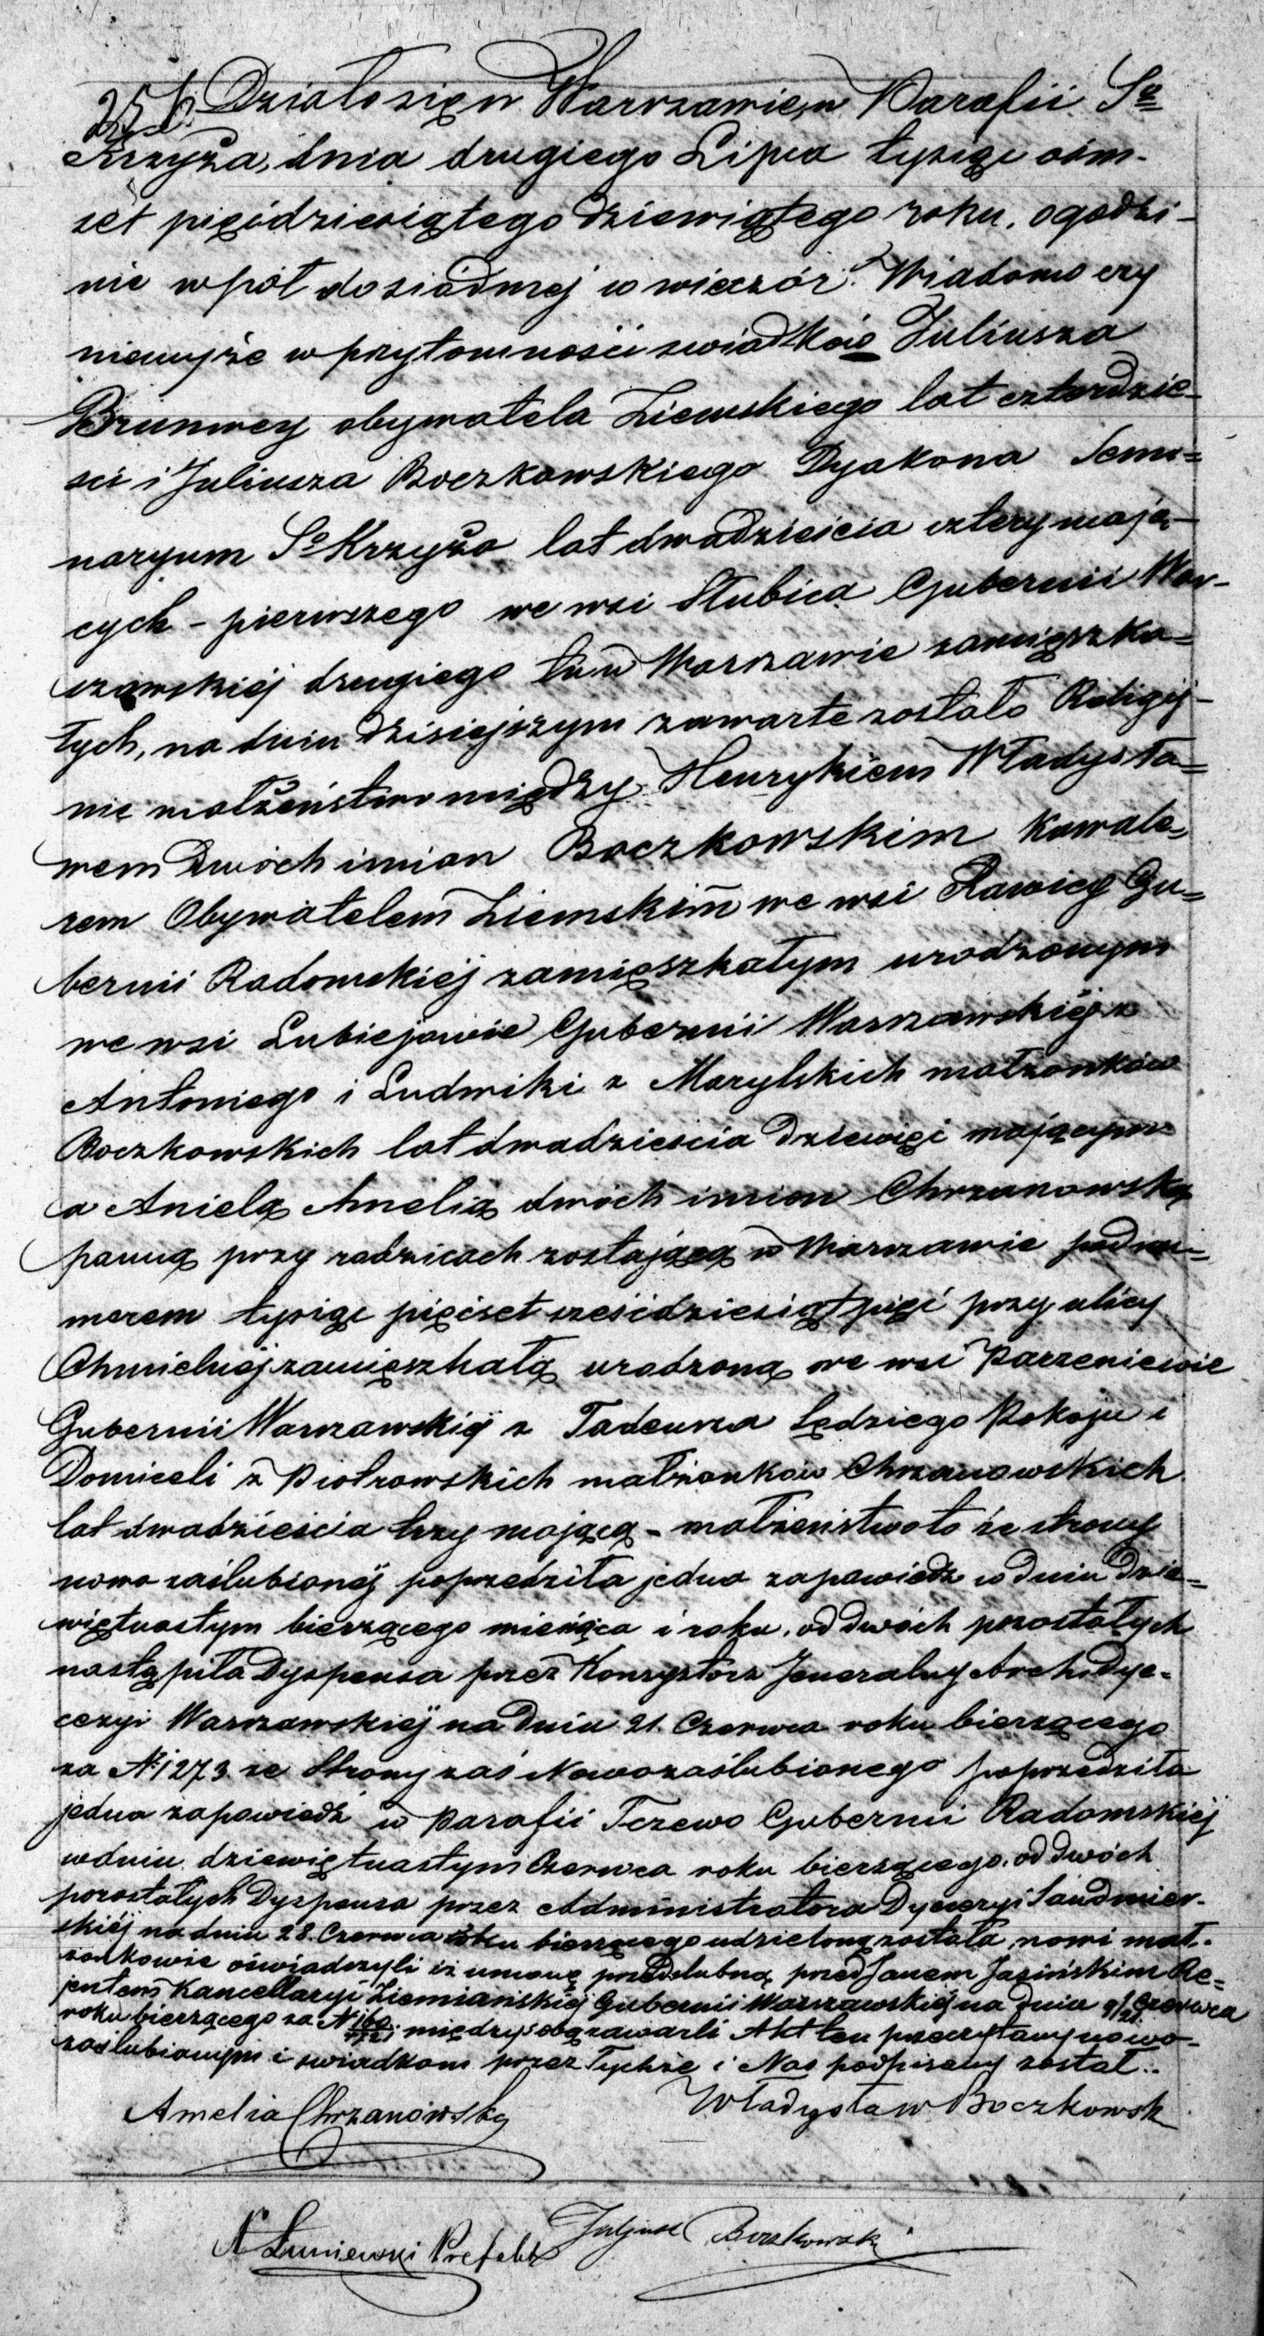 256. Działo się w Warszawie, w Parafii Sgo
Krzyża, dnia drugiego Lipca tysiąc ośm-
set pięćdziesiątego dziewiątego roku, o godzi-
nie w pół do siódmej w wieczór. Wiadomo czy
niemy że w przytomności świadków Juliusza
Brunwey obywatela Ziemskiego lat czterdzie-
ści i Juliusza Boczkowskiego Dyakona Semi=
naryum So Krzyża lat dwadzieścia cztery mają-
cych - pierwszego we wsi Słubica Gubernii War-
szawskiéj drugiego tu w Warszawie zamięszka=
łych, na dniu dzisiejszym zawarte zostało Religij-
nie małżeństwo między Henrykiem Władysła=
wem dwóch imion Boczkowskim Kawale=
rem Obywatelem Ziemskim we wsi Rawicy Gu=
bernii Radomskiéj zamięszkałym urodzonym
we wsi Lubiejowie Gubernii Warszawskiéj z
Antoniego i Ludwiki z Marylskich małżonków
Boczkowskich lat dwadzieścia dziewięć mającym
a Anielą Amelią dwóch imion Chrzanowską
panną przy rodzicach zostającą w Warszawie pod nu=
merem tysiąc pięćset sześćdziesiąt pięć przy ulicy
Chmielnéj zamięszkałą urodzoną we wsi Parzeniewie
Gubernii Warszawskiéj z Tadeusza Sędziego Pokoju i
Domiceli z Piotrowskich małżonków Chrzanowskich
lat dwadzieścia trzy mającą - małżeństwo to ze strony
nowo zaślubionéj poprzedziła jedna zapowiedź w dniu dzie=
więtnastym bieżącego miesiąca i roku, od dwóch pozostałych
nastąpiła Dyspensa przez Konsystorz Jeneralny Archidye=
cezyi Warszawskiéj na dniu 21. Czerwca roku bieżącego
za No 1273 ze Strony zaś Nowozaślubionego poprzedziła
jedna zapowiedź w Parafii Tczewo Gubernii Radomskiéj
w dniu dziewiętnastym Czerwca roku bieżącego, od dwóch
pozostałych Dyspensa przez Administratora Dyecezyi Sandmier-
skiéj na dniu 28. Czerwca roku bieżącego udzieloną została, nowi mał-
żonkowie oświadczyli iż umowę przedślubną przed Janem Jasińskim Re=
jentem Kancellaryi Ziemiańskiéj Gubernii Warszawskiéj na dniu 9/21 Czerwca
roku bieżącego za No między sobą zawarli Akt ten przeczytany nowo-
zaślubionym i świadkom przez Tychże i Nas podpisany został.
Amelia Chrzanowska Władysław Boczkowsk
Łuniewski Prefekt Juljusz Boczkowski